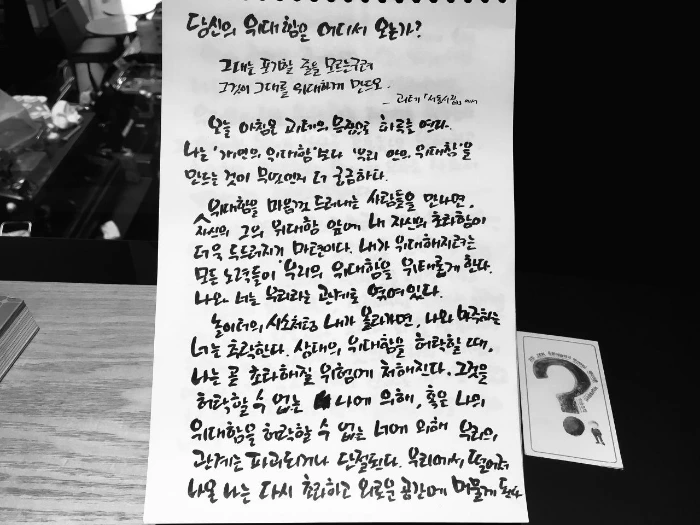 당신의 위대함은 어디서 오는가?
그대는 포기할 줄을 모르는구려
그것이 그대를 위대하게 만드오.
- 괴테 「서동시집」에서
오늘 아침은 괴테의 문장으로 하루를 연다.
나는 '개인의 위대함'보다 '우리 안의 위대함'을
만드는 것이 무엇인지 더 궁금하다.
위대함을 마음껏 드러내는 사람들을 만나면,
자신의 그의 위대함 앞에 내 자신의 초라함이
더욱 두드러지기 마련이다. 내가 위대해지려는
모든 노력들이 '우리의 위대함'을 위태롭게 한다.
나와 너는 우리라는 관계로 엮여있다.
놀이터의 시소처럼 내가 올라가면, 나와 마주하는
너는 추락한다. 상대의 위대함을 허락할 때,
나는 곧 초라해질 위험에 처해진다. 그것을
허락할 수 없는 나에 의해, 혹은 나의
위대함을 허락할 수 없는 너에 의해 우리의
관계는 파괴되거나 단절된다. 우리에서 떨어져
나온 나는 다시 초라하고 외로운 공간에 머물게 된다
?